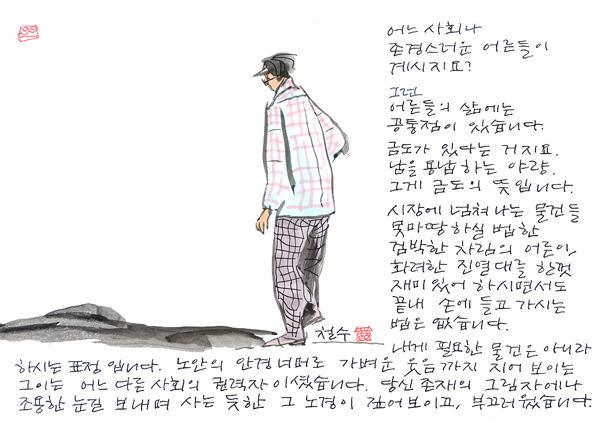 어느 사회나
존경스러운 어른들이
계시지요?
그런
어른들의 삶에는
공통점이 있습니다.
금도가 있다는 거지요.
남을 용납하는 아량.
그게 금도의 뜻입니다.
시장에 넘쳐나는 물건들
못마땅하실 법한
검박한 차림의 어른이,
화려한 진열대를 한껏
재미있어 하시면서도
끝내 손에 들고 가시는
법은 없습니다.
내게 필요한 물건은 아니라
하시는 표정입니다. 노안의 안경 너머로 가벼운 웃음까지 지어 보이는
그이는 어느 다른 사회의 권력자이셨습니다. 당신 존재의 그림자에나
조용한 눈길 보내며 사는 듯한 그 노경이 깊어보이고, 부끄러웠습니다.
철수